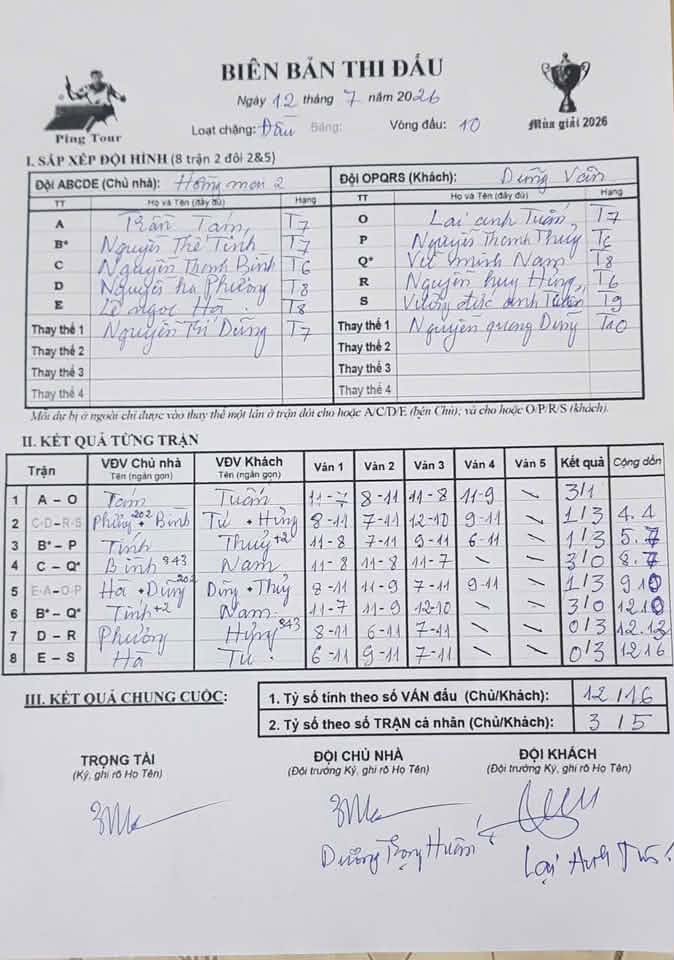 BIÊN BẢN THI ĐẤU
Ngày 12 tháng 7 năm 2026
Ping Tour
Loạt chặng: Đấu Bảng: Vòng đấu: 10
Mùa giải 2026
I. SẮP XẾP ĐỘI HÌNH (8 trận 2 đôi 2&5)
Đội ABCDE (Chủ nhà): Hồng mon 2 Đội OPQRS (Khách): Dũng Vân
TT Họ và Tên (đầy đủ) Hạng TT Họ và Tên (đầy đủ) Hạng
A Trần Tám T7 O Lại anh Tuấn T7
B* Nguyễn Thế Tính T7 P Nguyễn Thanh Thuỷ T6
C Nguyễn Thanh Bình T6 Q* Vũ minh Nam T8
D Nguyễn hà Phương T8 R Nguyễn huy Hùng T6
E Lê ngọc Hà T8 S Vương đức anh T9
Thay thế 1 Nguyễn Trí Dũng T7 Thay thế 1 Nguyễn quang Dũng T10
Thay thế 2 Thay thế 2
Thay thế 3 Thay thế 3
Thay thế 4 Thay thế 4
Mỗi dự bị ở ngoài chỉ được vào thay thế một lần ở trận đôi cho hoặc A/C/D/E (bên Chủ); và cho hoặc O/P/R/S (khách).
II. KẾT QUẢ TỪNG TRẬN
Trận VĐV Chủ nhà Tên (ngắn gọn) VĐV Khách Tên (ngắn gọn) Ván 1 Ván 2 Ván 3 Ván 4 Ván 5 Kết quả Cộng dồn
1 A – O Tám Tuấn 11-7 8-11 11-8 11-9 \ 3/1
2 C-D – R-S Phương 202 + Bình Tú + Hùng 8-11 7-11 12-10 9-11 \ 1/3 4.4
3 B* – P Tính Thuỷ +2 11-8 7-11 9-11 6-11 \ 1/3 5.7
4 C – Q* Bình 843 Nam 11-8 11-8 11-7 \ \ 3/0 8.7
5 E-A – O-P Hà + Dũng 202 Dũng + Thuỷ 8-11 11-9 7-11 9-11 \ 1/3 9.10
6 B* – Q* Tính +2 Nam 11-7 11-9 12-10 \ \ 3/0 12.10
7 D – R Phương Hùng 843 8-11 6-11 7-11 \ \ 0/3 12.13
8 E – S Hà Tú 6-11 9-11 7-11 \ \ 0/3 12.16
III. KẾT QUẢ CHUNG CUỘC:
1. Tỷ số tính theo số VÁN đấu (Chủ/Khách): 12/16
2. Tỷ số theo số TRẬN cá nhân (Chủ/Khách): 3/5
TRỌNG TÀI ĐỘI CHỦ NHÀ ĐỘI KHÁCH
(Ký, ghi rõ Họ Tên) (Đội trưởng Ký, ghi rõ Họ Tên) (Đội trưởng Ký, ghi rõ Họ Tên)
Dương Trọng Huấn Lại Anh Tuấn